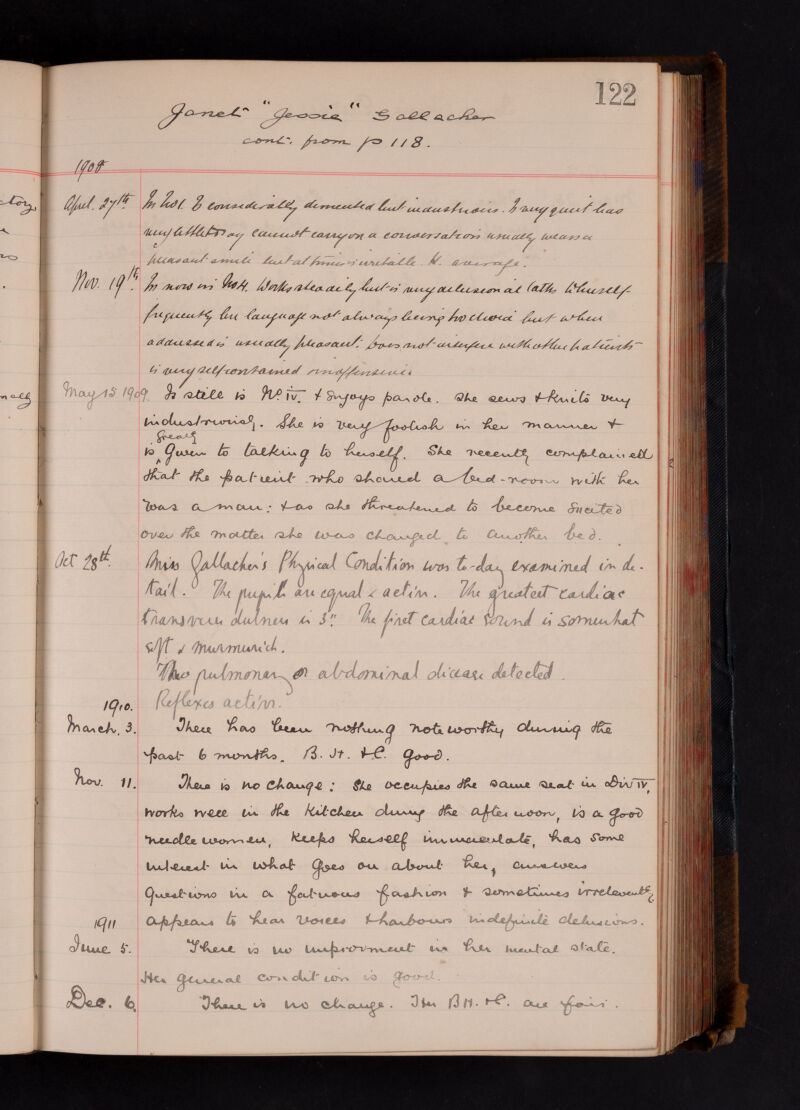 122
Janet "Jessie" Gallacher
cont. from p 118.
1908
April. 27th Is considerably demented but industrious. Is very quiet has
very little to say cannot carry on a conversation usually wears a
pleasant smile but at times is irritable. H. average.
Nov. 19th. Is now in No 4. Works steadily but is very delusional talks to herself
frequently her language not always being too choice but when
addressed is usually pleasant. Does not interfere with other patients
is very self contained inoffensive
May 15 1909. Is still is No IV. & enjoys parole. She sews & knits very
industriously. She is very foolish in her manner &
is greatly given to talking to herself. She recently complained
that the patient who shared a bed-room with her
was a man: & as she threatened to become excited
over the matter she was changed to another bed.
Oct 28th. Miss Gallacher's Physical Condition was to-day examined in de-
tail. The pupils are equal & active. The greatest cardiac
transverse dulness is 3". The first cardiac sound is somewhat
soft & murmurish.
No pulmonary or abdominal disease detected.
Reflexes active.
1910.
March. 3. There has been nothing noteworthy during the
past 6 months. B. H. & C. good.
Nov. 11. There is no change: she occupies the same seat in Div IV,
works well in the kitchen during the afternoon, is a good
needle women, keeps herself immaculate, has some
interest in what goes on about her, answers
questions in a fatuous fashion & sometimes irrelevantly,
appears to hear voices & harbours indefinite delusions.
1911
June 5. There is no improvment in her mental state.
Her general condition is good.
Dec. 6. There is no change. Her B.H. & C. are fair.